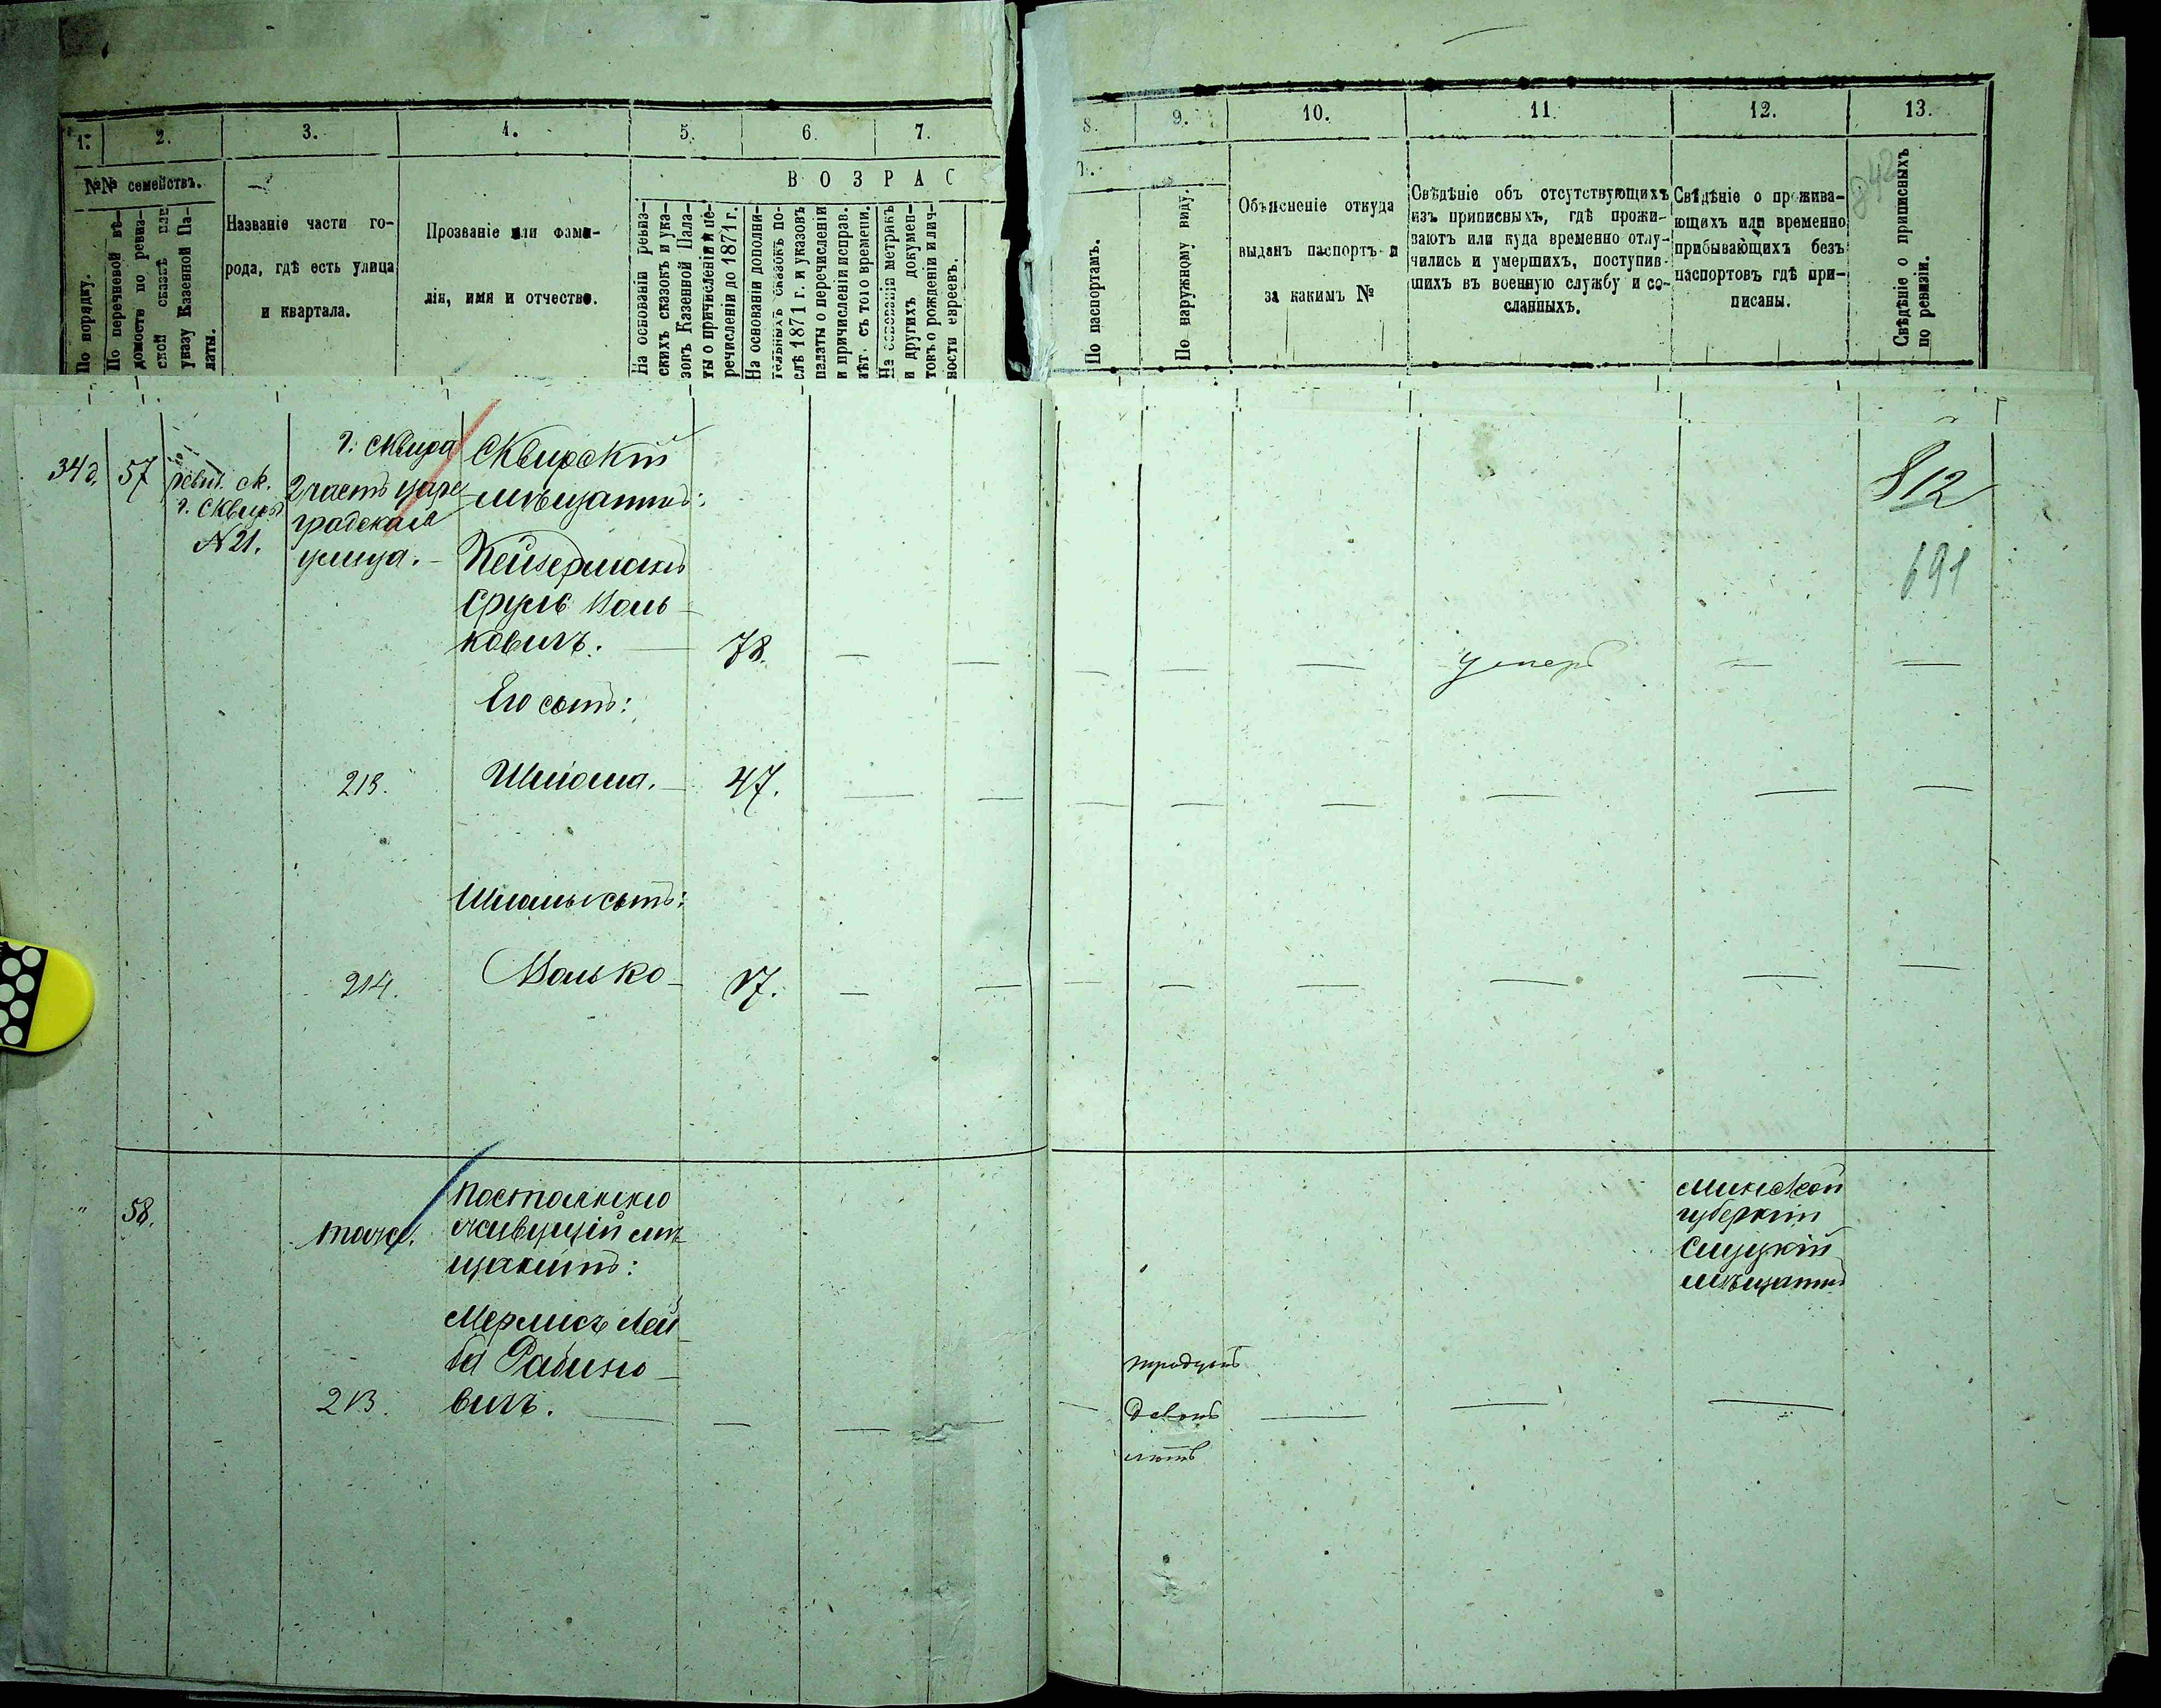 1. 2. 3. 4. 5. 6. 7. 8. 9. 10. 11. 12. 13.
№№ семействъ.
По порядку.
По перечневой вѣ-
домости по ревиз-
ской сказкѣ или
указу Казенной Па-
латы.
Названіе части го-
рода, гдѣ есть улица
и квартала.
Прозваніе или фами-
лія, имя и отчество.
ВОЗРАС
На основаніи ревиз-
скихъ сказокъ и ука-
зовъ Казенной Пала-
ты о причисленіи и пе-
речисленіи до 1871 г.
На основаніи дополни-
тельныхъ сказокъ по-
слѣ 1871 г. и указовъ
палаты о перечисленіи
и причисленіи исправ.
лѣт. съ того времени.
На основаніи метрикъ
и другихъ докумен-
товъ о рожденіи и лич-
ности евреевъ.
По паспортамъ.
По наружному виду.
Объясненіе откуда
выданъ паспортъ и
за какимъ №
Свѣдѣніе объ отсутствующихъ
изъ приписныхъ, гдѣ прожи-
ваютъ или куда временно отлу-
чились и умершихъ, поступив-
шихъ въ военную службу и со-
сланныхъ.
Свѣдѣніе о прожива-
ющихъ или временно
прибывающихъ безъ
паспортовъ гдѣ при-
писаны.
Свѣдѣніе о приписныхъ
по ревизіи.
842
34д. 57
ревиз. ск.
г. Сквира
N 21.
г. Сквира
2 часть Царе
градская
улица.
Сквирскій
мѣщанинъ:
Пейзерманъ
Сруль Воль-
ковичъ. 78.
умеръ
812
691
Его сынъ:
213. Шлома. 47.
Шломы сынъ:
214. Волько 17.
58.
тоже.
Постоянно
живущій мѣ
щанинъ:
Мерлисъ Лей
ба Рабино-
вичъ.
213.
тридцать
девять
лѣтъ
Минской
губерніи
Слуцкій
мѣщанинъ